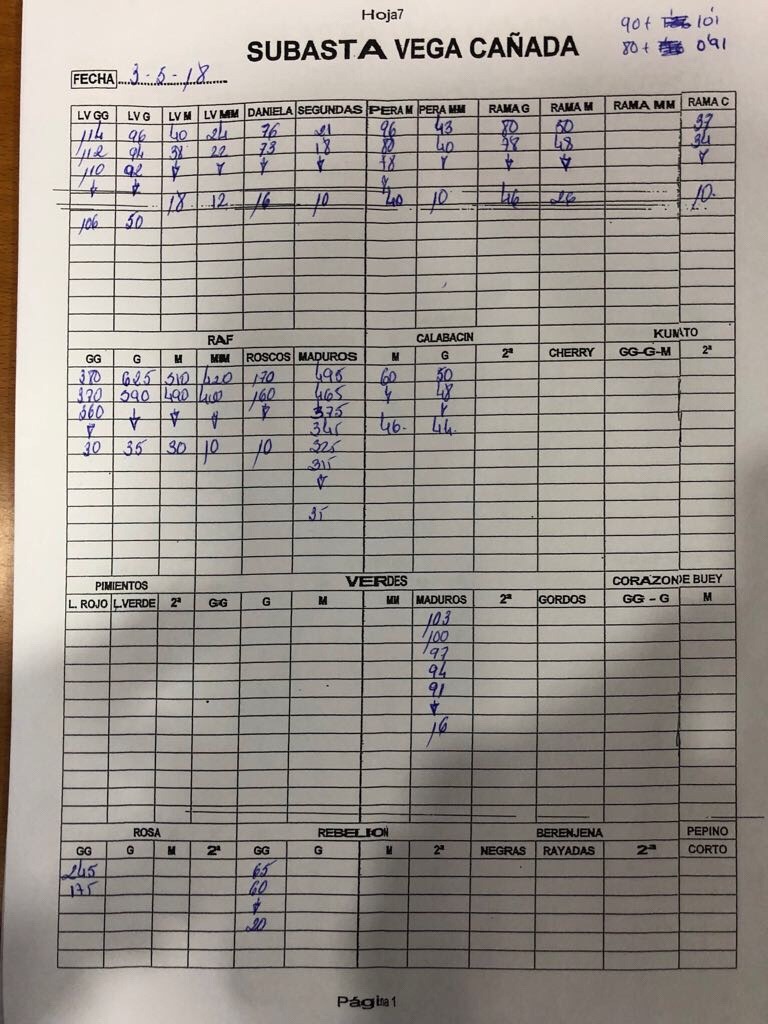 Hoja7
90+ 101
80+ 091
SUBASTA VEGA CAÑADA
FECHA 3-5-18
LV GG LV G LV M LV MM DANIELA SEGUNDAS PERA M PERA MM RAMA G RAMA M RAMA MM RAMA C
114 96 40 24 76 21 96 43 80 50 37
112 94 38 22 73 18 80 40 78 48 34
110 92 78
18 12 16 10 40 10 46 26 10
106 50
RAF CALABACIN KUMATO
GG G M MM ROSCOS MADUROS M G 2ª CHERRY GG-G-M 2ª
380 625 510 420 170 495 60 50
370 590 490 400 160 465 48
360 375
345 46 44
30 35 30 10 10 325
315
35
PIMIENTOS VERDES CORAZON DE BUEY
L. ROJO L.VERDE 2ª GG G M MM MADUROS 2ª GORDOS GG - G M
103
100
97
94
91
16
ROSA REBELION BERENJENA PEPINO
GG G M 2ª GG G M 2ª NEGRAS RAYADAS 2ª CORTO
245 65
175 60
20
Página 1